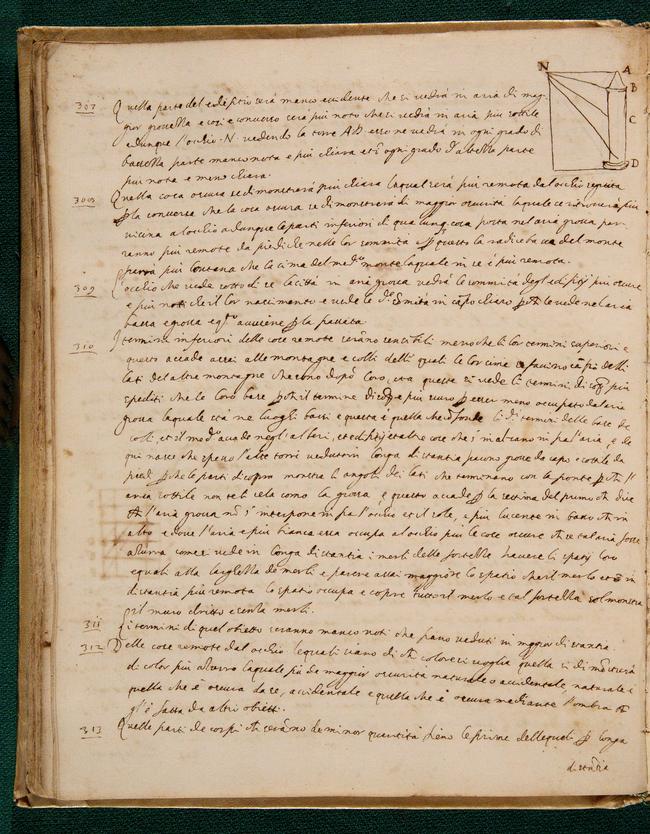 N A
B
C
D
307 Quella parte del edifitio sarà manco evidente che si vedrà in aria di mag-
gior grossezza e così e converso sarà più noto che si vedrà in aria più sottile
adunque l'ochio N vedendo la torre AD esso ne vedrà in ogni grado di
bassezza parte manco nota e più chiara et in ogni grado d'altezza parte
più nota e meno chiara.
308 Quella cosa oscura si dimostrarà più chiara la qual serà più remota dal ochio seguita
la conversa che la cosa oscura si dimostrarà di maggior oscurità la quale si ritroverà più
vicina a l'ochio adunque le parti inferiori di qualunq cosa posta nel aria grossa par-
ranno più remote da piedi che nelle lor sommità questo la radice bassa del monte
parrà più lontana che la cima del med.o monte la quale in sé è più remota.
309 L'ochio che vede sotto di se la città in aria grossa vedrà le sommità degl edifitij più oscure
e più note che il lor nascimento e vede le d.e somità in capo chiaro le vede nel aria
bassa e grossa e q.to avviene la passata
310 I termini inferiori delle cose remote seranno sensibili meno che li lor termini superiori e
questo accade assai alle montagne e colli delli quali le lor cime si facino capi delli
lati del altre montagne che sono dopo loro, et a queste si vede li termini di sop.a più
spediti che le loro base il termine di è più scuro esser meno occupato dal aria
grossa la quale sta ne luoghi bassi e questa è quella che confonde li d.i termini delle base de
colli, et il med.o accade negl' alberi, et edifitij et altre cose che s'inalzano infra l'aria, e de
qui nasce che spesso l'alte torri vedute in longa distantia paiono grosse da capo e sottile da
piedi che le parti di sopra mostra li angoli dei lati che terminano con la fronte l'
aria sottile non te li cela como la grossa e questo accade la settima del primo che dice
l'aria grossa s'interpone infra l'ochio et il sole, e più lucente in basso che in
alto e dove l'aria e più bianca essa occupa al ochio più le cose oscure
azurra come si vede in longa distantia i merli delle fortezze havere li spatij loro
eguali alla larghezza de merli e parere assai maggiore lo spatio che il merlo et in
distantia più remota lo spatio occupa e copre tutto il merlo e tal fortezza sol mostra
il muro dritto e senza merli.
311 I termini di quel obietto seranno manco noti che siano veduti in maggior distantia.
312 Delle cose remote dal ochio le quali siano di che colore si voglia quella si dimostrarà
di color più azurro la quale sia de maggior oscurità naturale o accidentale, naturale è
quella che è oscura da se, accidentale e quella che è oscura mediante l'ombra che
gl'è fatta da altri obietti.
313 Quelle parti de corpi che seranno de minor quantità sieno le prime delle quali longa
distantia